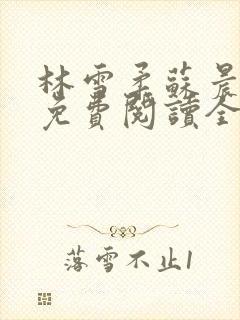 林雪柔蘇晨
免費閱讀全
落雪不止1